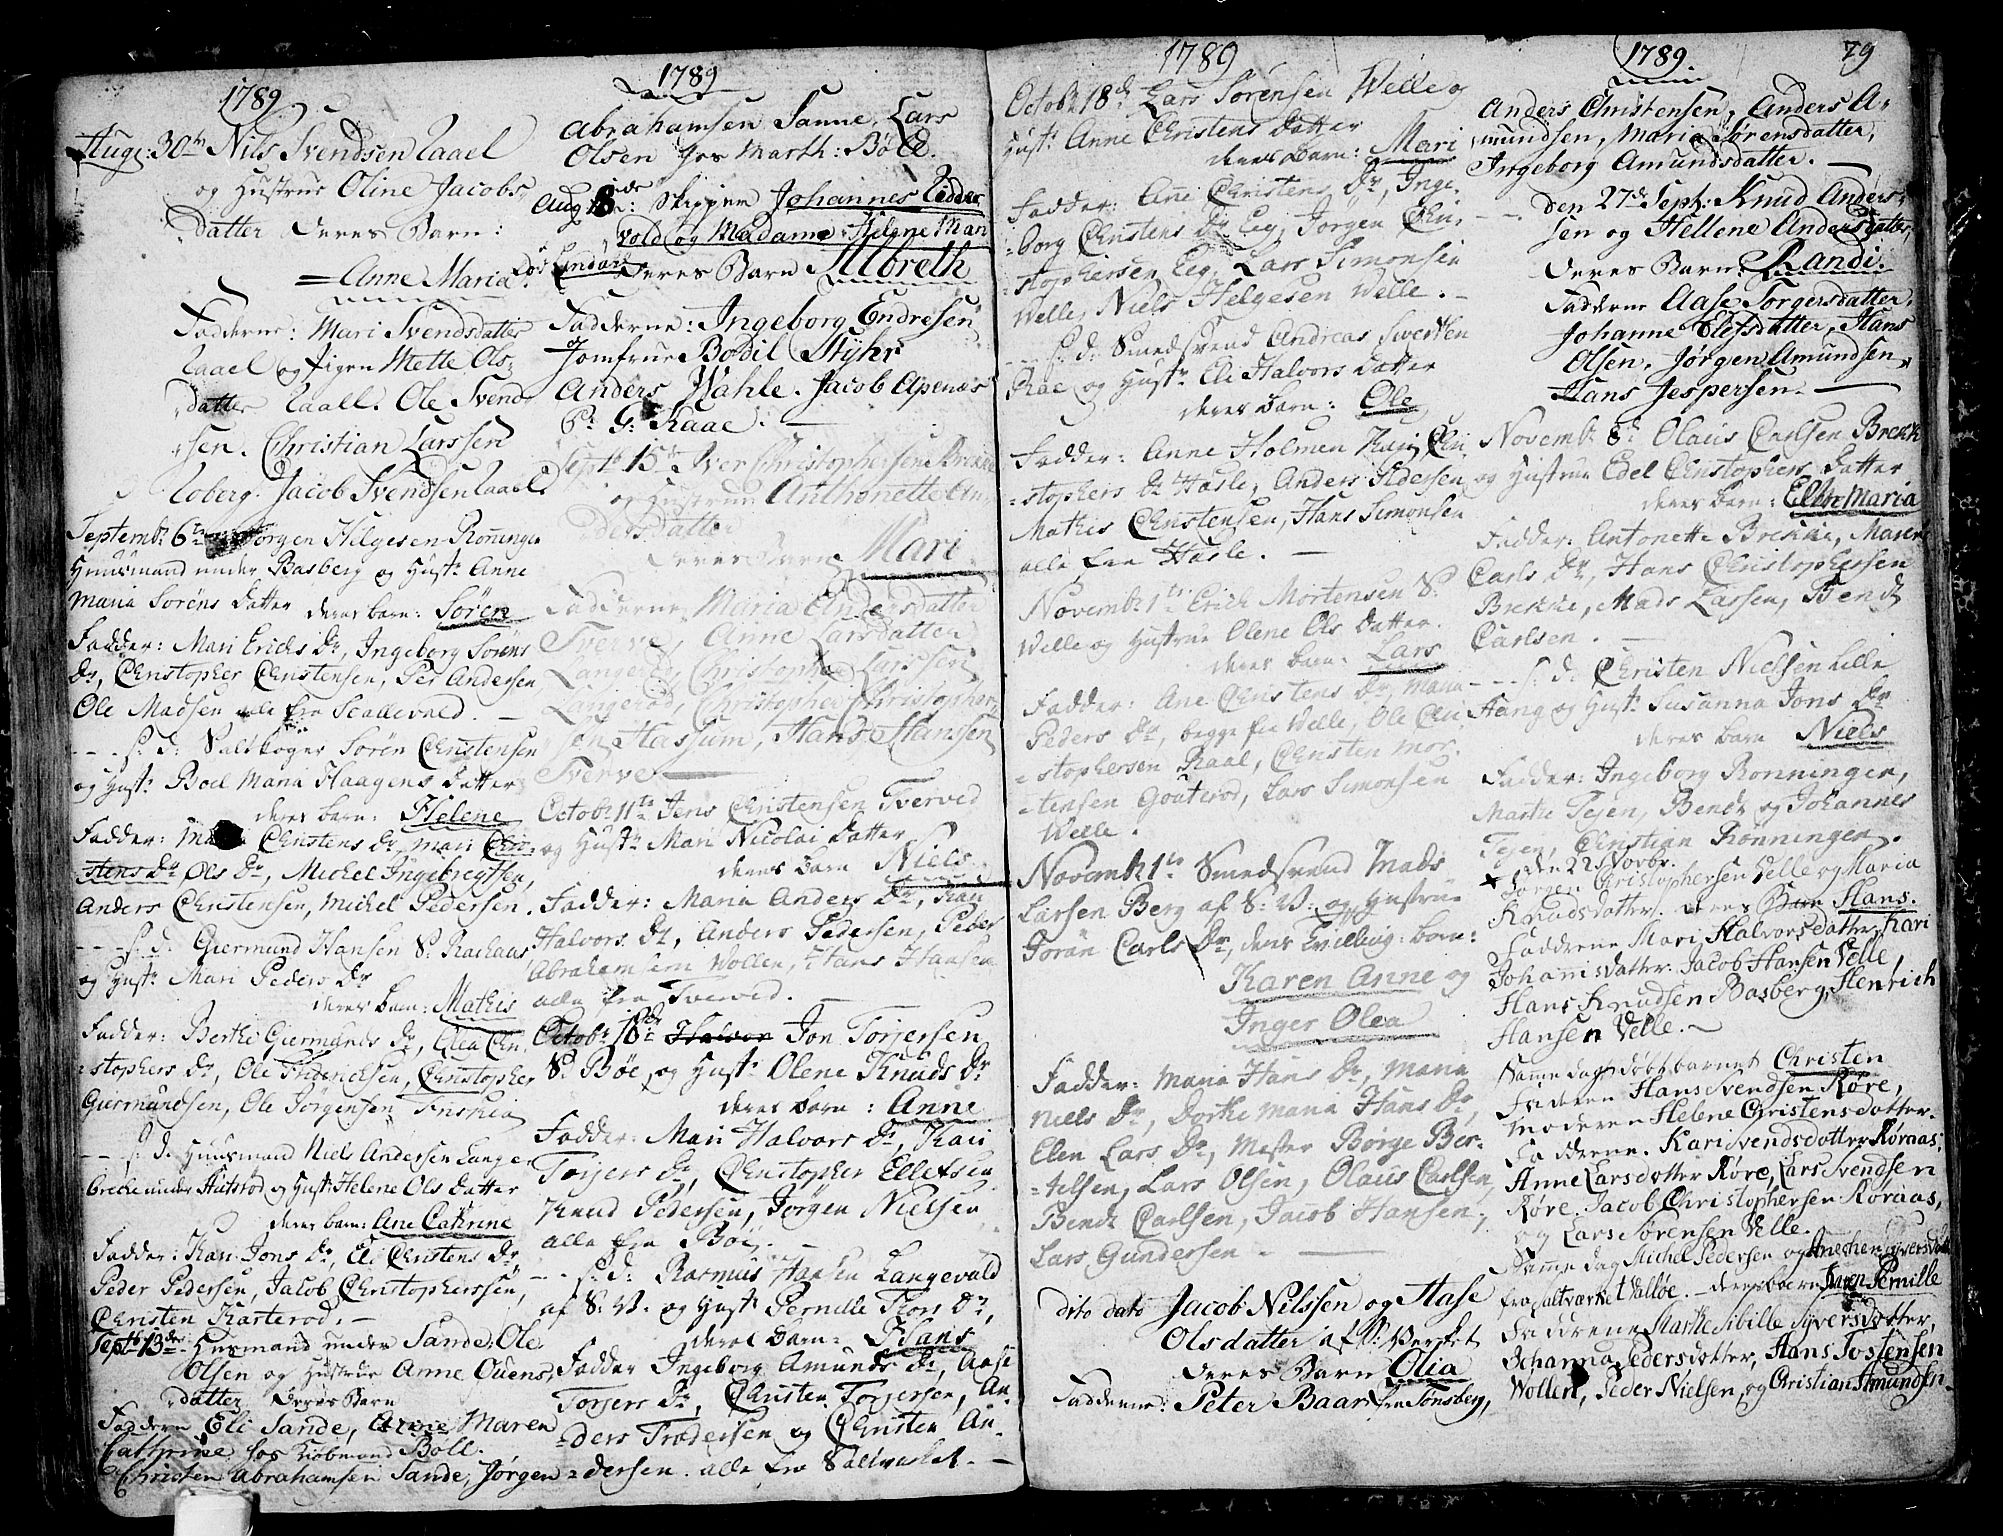 1789
Aug: 30th Nils Svendsen Raael
og Hustrue Oline Jacobs
datter Deres Barn:
Anne Maria
Fadderne: Mari Svendsdatter
Raael og Pigen Mette Ols
datter Raall. Ole Svend
sen. Christian Larssen
Roberg. Jacob Svendsen Raael
Septemb: 6te Jørgen Hilgesen Rønningen
Huusmand under Basberg og Hust: Anne
Maria Sørens Datter deres barn: Søren
Fadder: Mari Erichs Dr, Ingeborg Sørens
Dr, Christopher Christensen, Per Andersen
Ole Madsen alle fra Scallevald.
- - - s: d: Saltkoger Sørén Christensen
og Hust: Boel Maria Haagens Datter
deres barn: Helene
Fadder: Christens Dr mari Chri-
stens Dr Ols Dr, Michel Ingebregtsen,
Anders Christensen, Michel Pedersen.
- - - s: d: Giermund Hansen S: Rachaas
og Hust: Mari Peders Dr
deres barn: Mathis
Fadder: Berthe Giermunds Dr, Elea Chri-
stophers Dr, Ole Friderichsen, Christopher
Giermundsen, Ole Jørgensen
- - s: d: Huusmand Niels Andersen Lange
brecke under Skutsrød og Hust: Helene Ols Datter
deres barn: Ane Cathrine
Fadder: Kari Jons Dr, Eli Christens Dr
Peder Pedersen, Jacob Christopherssen,
Christen Karterod.
Septb 13de Husmand under Sande, Ole
Olsen og Hustrue Anne Ouens
datter Deres Barn
Faddern Eli Sande, Anne Maren
Cathrine hos Kiøbmand Boll.
Christen Abrahamsen Sande, Jørgen
1789
Abrahamsen Sanne, Lars
Olsen hos Marth: Bøll.
Aug Skipper Johannes Tidder
vold og Madame Helene Mari
Deres Barn Albreth
Fadderne: Ingeborg Endresen
Jomfrue Bodil Styhr
Anders Wahle. Jacob Apenæs
P: G: Kaae.
Septb 15 Iver Christophersen Brekke
og Hustrue Anthonette An-
dersdatter
Deres Barn Mari
Fadderne, Maria Andersdatter
Tverve, Anne Larsdatter
Langerød, Larssen
Langerød, Christopher Christopher
sen Hassum, Hans Hansen
Tverve
Octobr 11te Jens Christensen Tverved
og Hust: Mari Nicolai Datter
deres barn Niels
Fadder: Maria Anders Dr, Kari
Halvors Dr, Anders Pedersen, Peder
Abrahamsen Wollen, Hans Hansen
alle fra Tverved.
Octobr 18de Halvor Jon Torjersen
S: Bøe, og Hust: Olene Knuds Dr
deres barn: Anne
Fadder: Mari Halvors Dr, Kari
Torjers Dr, Christopher Ellefsen
Knud Pedersen, Jørgen Nielsen
alle fra Bøe.
- - s: d: Rasmus Hansen Langevald
af S: V: og Hust: Pernille Thors Dr,
deres barn: Hans
Fadder Ingeborg Amunds Dr, Aase
Torjers Dr, Christen Torjersen, An-
ders Trædersen og Christen An-
dersen. alle fra Saltverket.
1789
Octobr 18de Lars Sørensen Welle og
Hust: Anne Christens Datter
deres barn: Mari
Fadder: Ane Christens Dr, Inge-
borg Christens Dr Eeg, Jørgen Chri-
stophersen Eeg, Lars Simonsen
Welle, Niels Helgesen Welle.
- - - s: d: Smedsvend Andreas Swerthen
Raae og Hust: Eli Halvors Datter
deres barn: Ole
Fadder: Anne Holmen Kari Chri-
stophers Dr Hasle, Anders Pedersen,
Mathis Christensen, Hans Simonsen
alle fra Hasle.
Novembr 1te Erich Mortensen S:
Welle og Hustrue Olene Ols Datter.
deres barn: Lars
Fadder: Ane Christens Dr, Maria
Peders Dr, begge fra Welle, Ole Chri-
stophersen Raal, Christen Mor-
tensen Gouterød, Lars Simonsen
Welle.
Novembr 1te Smedsvend Mads
Larsen Berg af S: V: og Hustrue
Joran Carls Dr, deres Tvilling: barn:
Karen Anne og
Inger Olea
Fadder: Maria Hans Dr, Maria
Niels Dr, Dorthe Maria Hans Dr,
Elen Lars Dr, Mester Børge Ber-
telsen, Lars Olsen, Olaus Carlsen,
Bendt Carlsen, Jacob Hansen,
Lars Gundersen.
dito dato Jacob Nilssen og Aase
Olsdatter af S: Verket
Deres Barn Olia
Fadderne: Peter Baar fra Tønsberg,
1789. 79
Anders Christensen, Anders A-
mundsen, Maria Sørensdatter,
Ingeborg Amundsdatter.
- - Den 27de Sept: Knud Anders-
sen og Hellene Andersdatter,
Deres Barn: Randi.
Fadderne Aase Torgersdatter,
Johanne Elefsdatter, Hans
Olsen, Jørgen Amundsen
Hans Jespersen.
Novembr 8de Olaus Carlsen Brekke
og Hustrue Edel Christophers Datter
deres barn: Ellen Maria
Fadder: Antonette Brekke, Maren
Carls Dr, Hans Christophersen
Brekke, Mads Lassen, Bendt
Carlsen.
- - - s: d: Christen Nielsen Lille
Hang og Hust: Susanna Jons Dr
deres barn Niels
Fadder: Ingeborg Rønningen,
Marthe Tejen, Bendt og Johannes
Tejen, Christian Rønningen.
* den 22 Novbr.
Jørgen Christophersen Velle og Maria
Knudsdatter. deres Barn Hans.
Fadderne Mari Halvorsdatter, Kari
Johannisdatter. Jacob Hansen Velle,
Hans Knudsen Basberg, Henrich
Hansen Velle.
Samme dag døbt barnet Christen
Faderen Hans Svendsen Røre,
Moderen Helene Christensdatter.
Fadderne. Kari Svendsdatter Røraas,
Anne Larsdatter Røre, Lars Svendsen
Røre. Jacob Christophersen Røraas,
og Lars Sørensen Velle.
Samme dag Michel Pedersen og Anichen Syversdatt
fra Saltværket Valløe. - deres barn Pernille
Faddrene Marthe Sibille Syversdatter,
Johanna Pedersdatter, Hans Tostensen
Wollen, Peder Nielsen, og Christian Amundsen